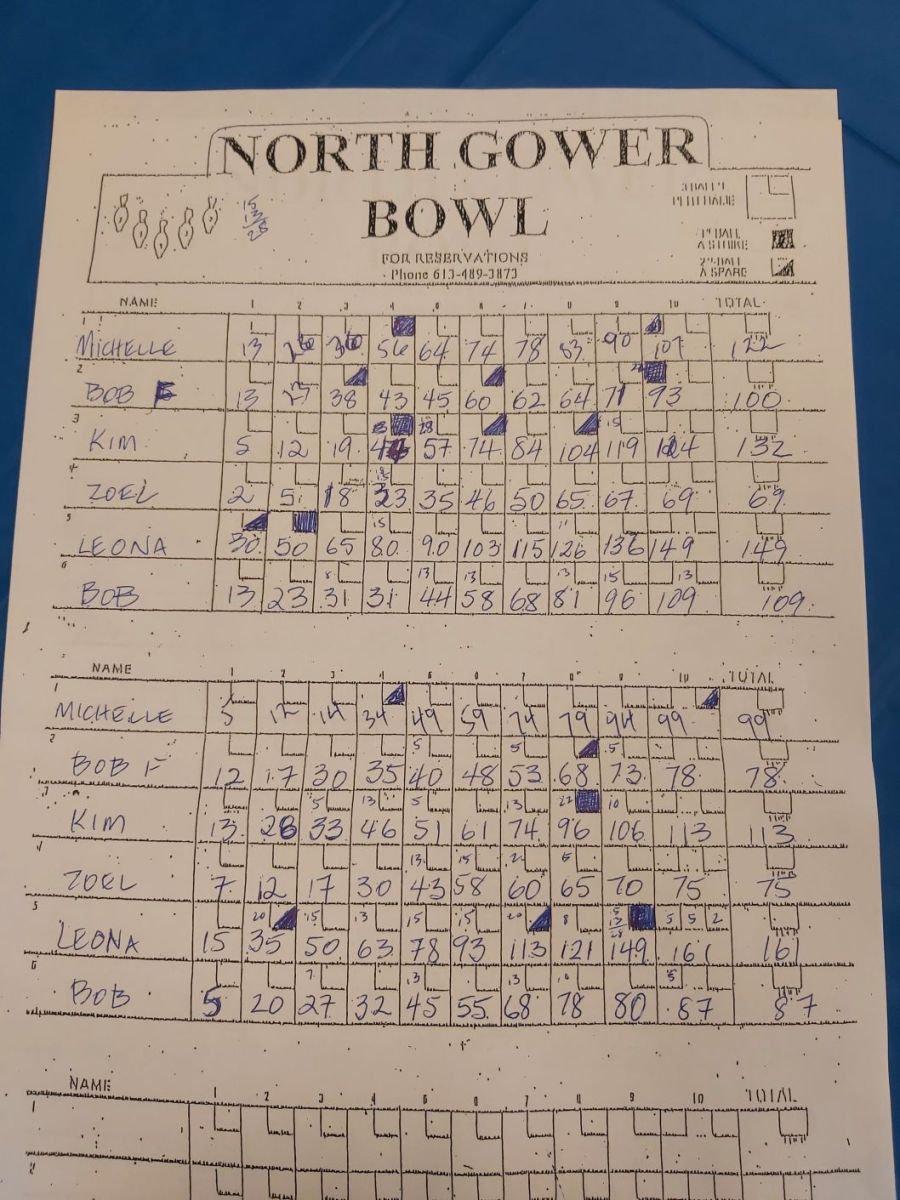 NORTH GOWER
BOWL
FOR RESERVATIONS
Phone 613-489-3873
3 BALLS
PER FRAME
1st BALL
A STRIKE
2nd BALL
A SPARE
15
13
28
NAME 1 2 3 4 5 6 7 8 9 10 TOTAL
1 MICHELLE 13 26 36 56 64 74 78 83 90 107 122
2 BOB F 13 23 38 43 45 60 62 64 71 93 100
3 KIM 5 12 19 47 57 74 84 104 119 124 132
4 ZOEL 2 5 18 33 35 46 50 65 67 69 69
5 LEONA 30 50 65 80 90 103 115 126 136 149 149
6 BOB 13 23 31 31 44 58 68 81 96 109 109
NAME 1 2 3 4 5 6 7 8 9 10 TOTAL
1 MICHELLE 5 12 14 34 49 59 74 79 94 99 99
2 BOB F 12 17 30 35 40 48 53 68 73 78 78
3 KIM 13 28 33 46 51 61 74 96 106 113 113
4 ZOEL 7 12 17 30 43 58 60 65 70 75 75
5 LEONA 15 35 50 63 78 93 113 121 149 161 161
6 BOB 5 20 27 32 45 55 68 78 80 87 87
NAME 1 2 3 4 5 6 7 8 9 10 TOTAL
1
2